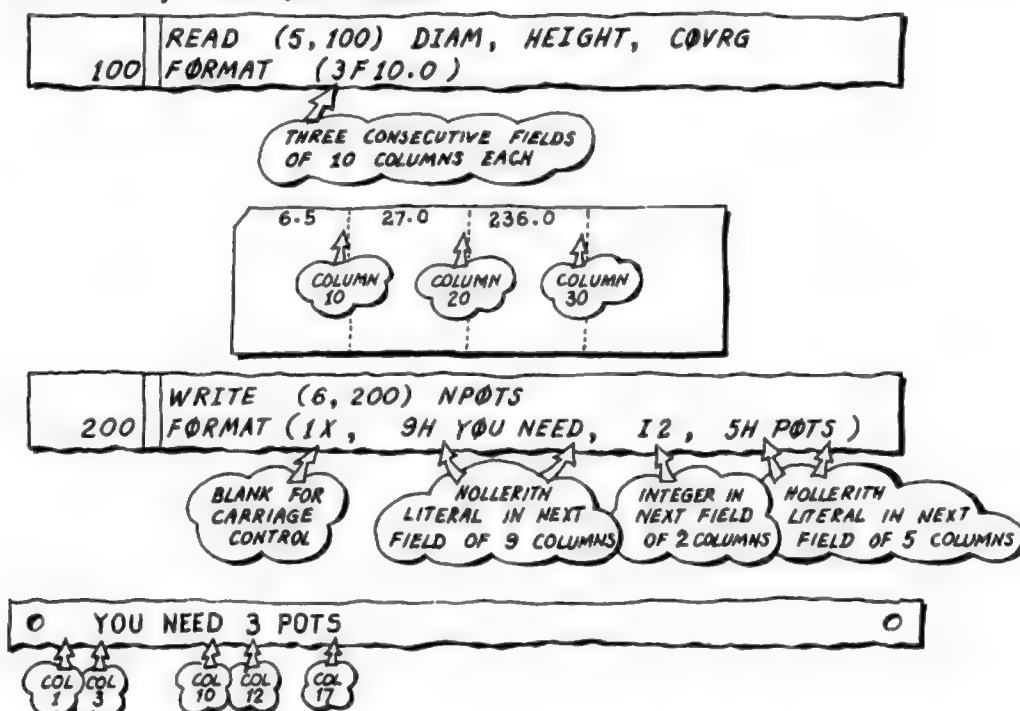 READ (5,100) DIAM, HEIGHT, CØVRG
100 FØRMAT (3F10.0)
THREE CONSECUTIVE FIELDS
OF 10 COLUMNS EACH
6.5 27.0 236.0
COLUMN
10
COLUMN
20
COLUMN
30
WRITE (6,200) NPØTS
200 FØRMAT (1X, 9H YØU NEED, I2, 5H PØTS)
BLANK FOR
CARRIAGE
CONTROL
HOLLERITH
LITERAL IN NEXT
FIELD OF 9 COLUMNS
INTEGER IN
NEXT FIELD
OF 2 COLUMNS
HOLLERITH
LITERAL IN NEXT
FIELD OF 5 COLUMNS
YOU NEED 3 POTS
COL
1
COL
3
COL
10
COL
12
COL
17